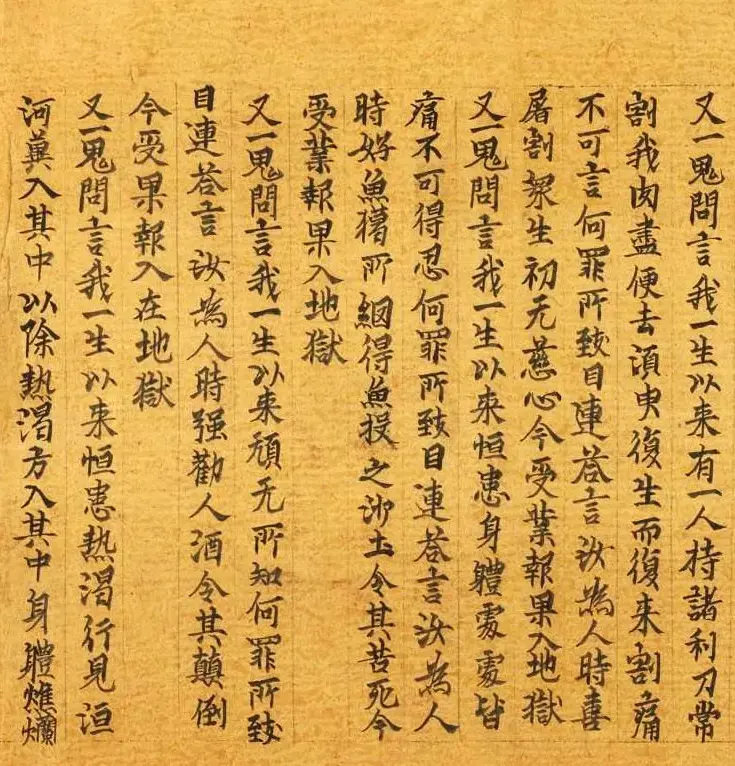 又一鬼問言我一生以来有一人持諸利刀常
割我肉盡便去湏臾復生而復来割痛
不可言何罪所致目連荅言汝為人時喜
屠割衆生初无慈心今受業報果入地獄
又一鬼問言我一生以来恒患身軆處處皆
痛不可得忍何罪所致目連荅言汝為人
時好魚獦所網得魚投之沙土令其苦死今
受業報果入地獄
又一鬼問言我一生以来頑无所知何罪所致
目連荅言汝為人時强勸人酒令其顛倒
今受果報入在地獄
又一鬼問言我一生以来恒患熱渴行見洹
河冀入其中以除熱渴方入其中身軆燋爛